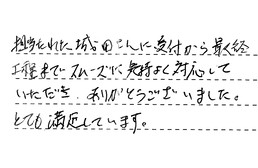 担当された城田さんに受付から最終
工程までスムーズに気持よく対応して
いただき ありがとうございました。
とても満足しています。